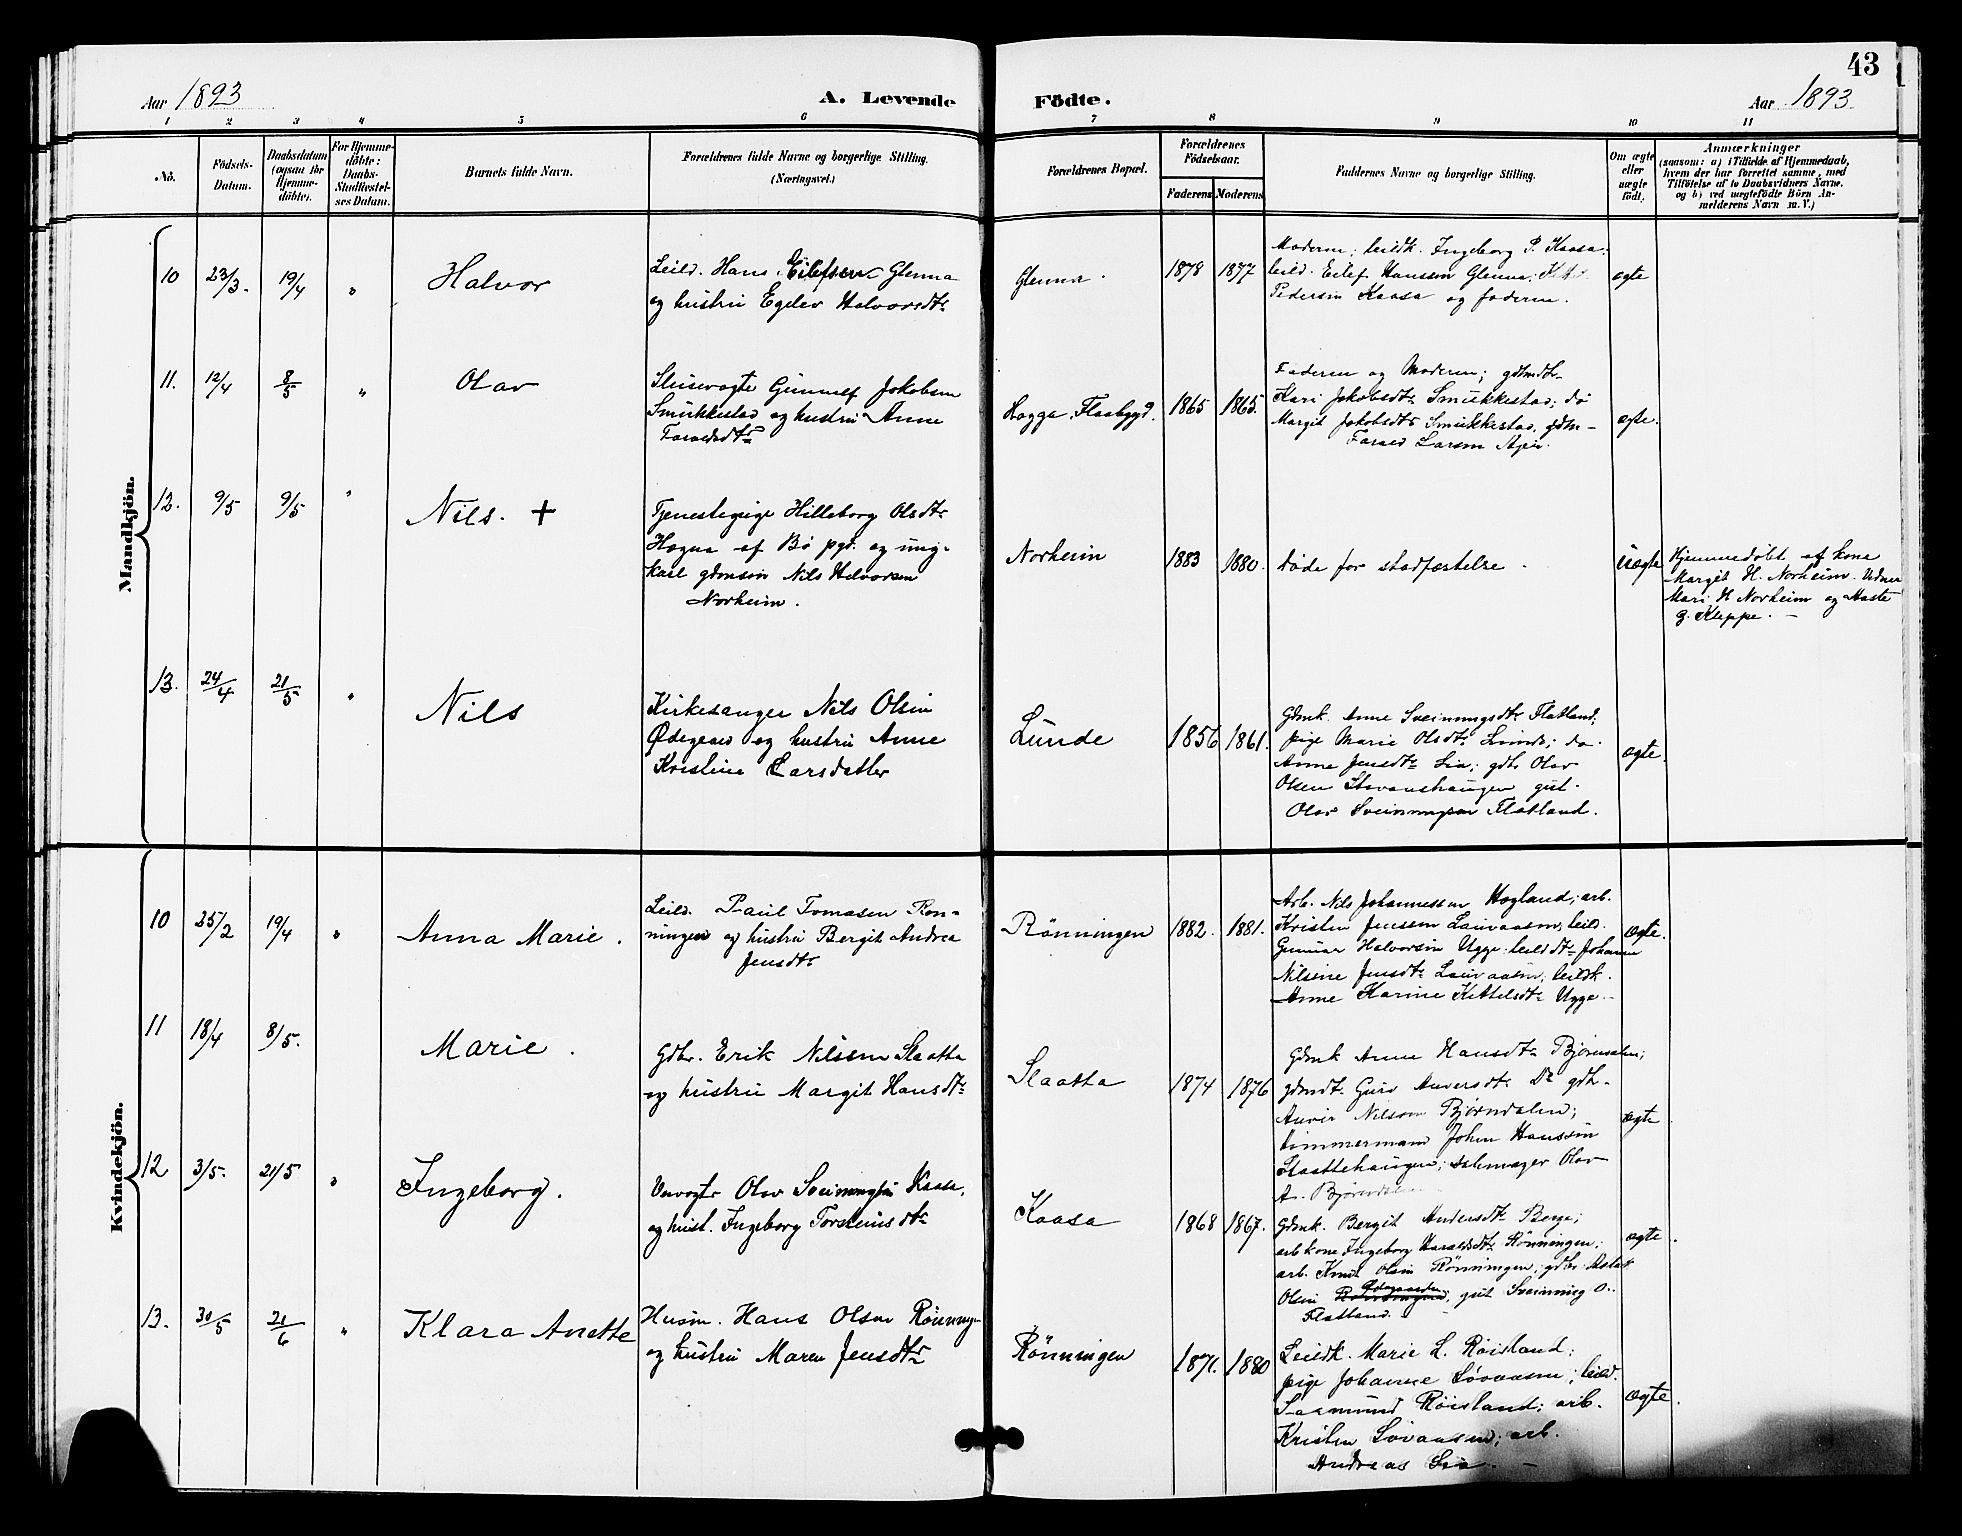 43
Aar 1893
A. Levende
Födte.
Aar 1893.
1 2 3 4 5 6 7 8 9 10 11
No.
Födsels-
Datum.
Daabsdatum
(ogsaa for
Hjemme-
döbte).
For Hjemme-
döbte:
Daabs-
Stadfæstel-
ses Datum.
Barnets fulde Navn.
Forældrenes fulde Navne og borgerlige Stilling.
(Næringsvei.)
Forældrenes Bopæl.
Forældrenes
Födselsaar.
Faderens
Moderens
Faddernes Navne og borgerlige Stilling.
Om ægte
eller
uægte
födt.
Anmærkninger
(saasom: a) i Tilfælde af Hjemmedaab,
hvem der har forrettet samme, med
Tilföielse af to Daabsvidners Navne.
og b) ved uægtefödte Börn An-
melderens Navn m. V.)
Mandkjön.
10 23/3. 19/4 "
Halvor
Leild. Hans Eilefsen Glenna
og hustru Egelev Halvorsdtr
Glenna.
1878 1877
Moderen; leildk. Ingeborg P. Kaasa;
leild. Eilef Hanssen Glenna;
Pedersen Kaasa og faderen.
ægte
11. 12/4 8/5 "
Olav
Slusevogte Gunnulf Jakobsen
Smukkestad og hustru Anne
Taraldsdtr
Hogga, Flaabygd.
1865 1865.
Faderen og Moderen; gdmdtr
Kari Jakobsdtr Smukkestad; do
Margit Jakobsdtr Smukkestad, gdm-
Larsen
ægte.
12. 9/5 9/5 "
Nils. +
Tjenestepige Hilleborg Olsdtr
Hogna af Bö pgd. og ung-
karl gdmsön Nils Halvorsen
Norheim.
Norheim
1883 1880.
döde for stadfæstelse.
uægte
Hjemmedöbt af kone
Margit H. Norheim. Vidner
Mari H Norheim og Aaste
G. Kleppe. –
13. 24/4 21/5 "
Nils
Kirkesanger Nils Olsen
Ødegaard og hustru Anne
Kristine Larsdatter
Lunde
1856 1861.
Gdmk. Anne Sveinungsdtr Flatland;
pige Marie Olsdtr Lunde; do.
Anne Jensdtr Lia; gdbr Olav
Olsen Stavanshaugen gut.
Olav Sveinungsen Flatland.
ægte.
Kvindekjön.
10 25/2 19/4 "
Anna Marie.
Leild. Paul Tomasen Rön-
ningen og hustru Bergit Andrea
Jensdtr
Rönningen
1882. 1881.
Arb. Nils Johannessen Hogland; arb.
Kristen Jenssen Lauvaasen, leild.
Gunnar Halvorsen Ugge. leilddtr Johanne
Nilsine Jensdtr Lauvaasen; leildk.
Anne Karine Kittelsdtr Ugge. –
ægte.
11 18/4 8/5.
Marie.
Gdbr. Erik Nilsen Slaatta
og hustru Margit Hansdtr
Slaatta
1874 1876
Gdmk Anne Hansdtr Björndalen;
gdmdtr Guro Anversdtr Do gdb.
Anver Nilsen Björndalen;
tömmermand Johan Hanssen
Slaattehaugen; salmager Olav
A. Björndalen
ægte
12 3/5. 21/5 "
Ingeborg.
Olav Sveinungsen Kaasa,
og hust. Ingeborg Torsteinsdtr
Kaasa
1868 1867.
Gdmk. Bergit Andersdtr Berge;
arb kone Ingeborg Haraldsdtr Rönningen;
arb. Knut Olsen Rönningen; gdbr Aslak
Olsen Ödegaarden, gut Sveinung O.
Flatland.
ægte.
13. 30/5 21/6 "
Klara Anette
Husm. Hans Olsen Rönningen
og hustru Maren Jensdtr
Rönningen
1871. 1880
Leildk. Marie L. Röisland;
pige Johanne Lövaasen; leild.
Saamund Röisland; arb.
Kristen Lövaasen; arb.
Andreas Lia. –
ægte.